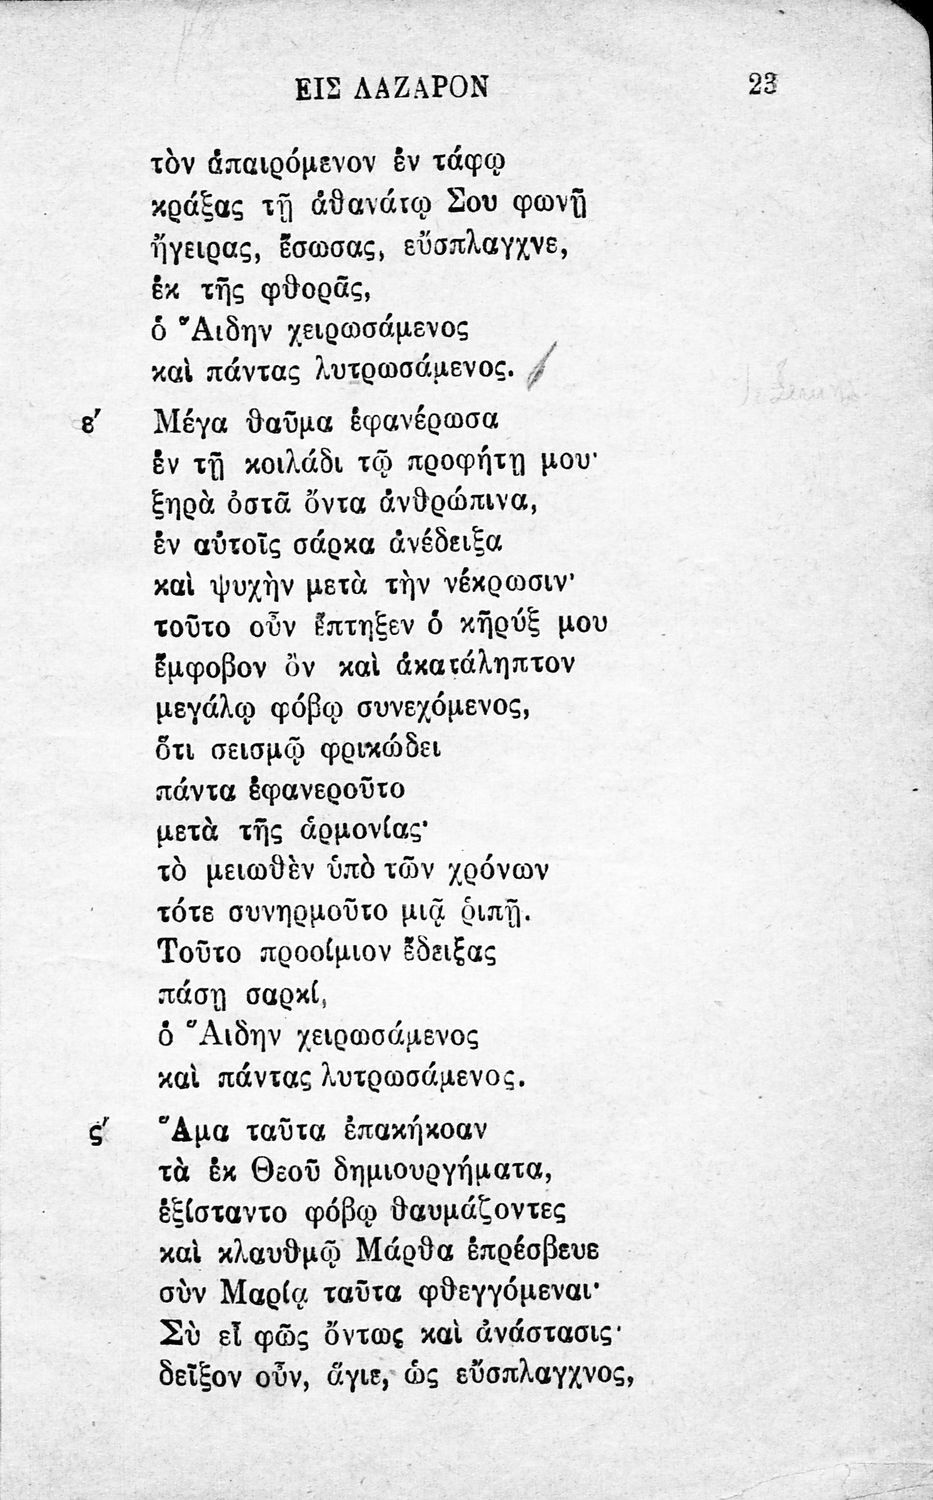 ΕΙΣ ΛΑΖΑΡΟΝ 23
τὸν ἀπαιρόμενον ἐν τάφῳ
κράξας τῇ ἀθανάτῳ Σου φωνῇ
ἤγειρας, ἔσωσας, εὔσπλαγχνε,
ἐκ τῆς φθορᾶς,
ὁ Ἅιδην χειρωσάμενος
καὶ πάντας λυτρωσάμενος.
ε′ Μέγα θαῦμα ἐφανέρωσα
ἐν τῇ κοιλάδι τῷ προφήτῃ μου·
ξηρὰ ὀστᾶ ὄντα ἀνθρώπινα,
ἐν αὐτοῖς σάρκα ἀνέδειξα
καὶ ψυχὴν μετὰ τὴν νέκρωσιν·
τοῦτο οὖν ἔπτηξεν ὁ κῆρύξ μου
ἔμφοβον ὂν καὶ ἀκατάληπτον
μεγάλῳ φόβῳ συνεχόμενος,
ὅτι σεισμῷ φρικώδει
πάντα ἐφανεροῦτο
μετὰ τῆς ἁρμονίας·
τὸ μειωθὲν ὑπὸ τῶν χρόνων
τότε συνηρμοῦτο μιᾷ ῥιπῇ.
Τοῦτο προοίμιον ἔδειξας
πάσῃ σαρκί,
ὁ Ἅιδην χειρωσάμενος
καὶ πάντας λυτρωσάμενος.
ς′ Ἅμα ταῦτα ἐπακήκοαν
τὰ ἐκ Θεοῦ δημιουργήματα,
ἐξίσταντο φόβῳ θαυμάζοντες
καὶ κλαυθμῷ Μάρθα ἐπρέσβευε
σὺν Μαρίᾳ ταῦτα φθεγγόμεναι·
Σὺ εἶ φῶς ὄντως καὶ ἀνάστασις·
δεῖξον οὖν, ἅγιε, ὡς εὔσπλαγχνος,